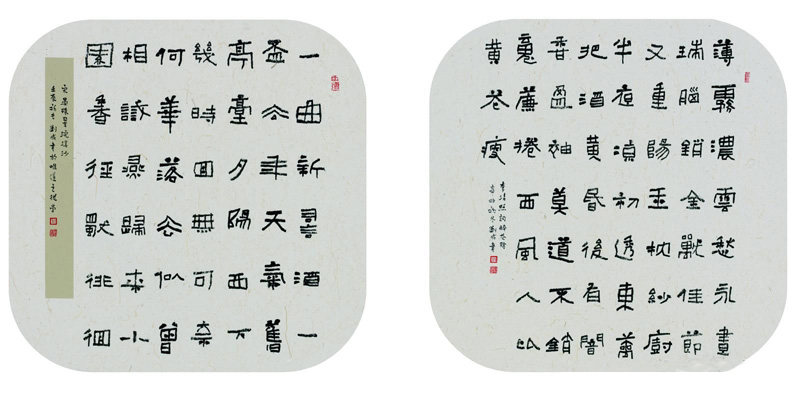 一曲新詞酒一
盃去年天氣舊
亭臺夕陽西下
幾時回無可奈
何華落去似曾
相識燕歸來小
園香徑獨徘徊
薄霧濃雲愁永晝
瑞腦銷金獸佳節
又重陽玉枕紗廚
半夜涼初透東籬
把酒黃昏後有暗
香盈袖莫道不銷
魂簾捲西風人比
黃花瘦
李清照詞醉花陰